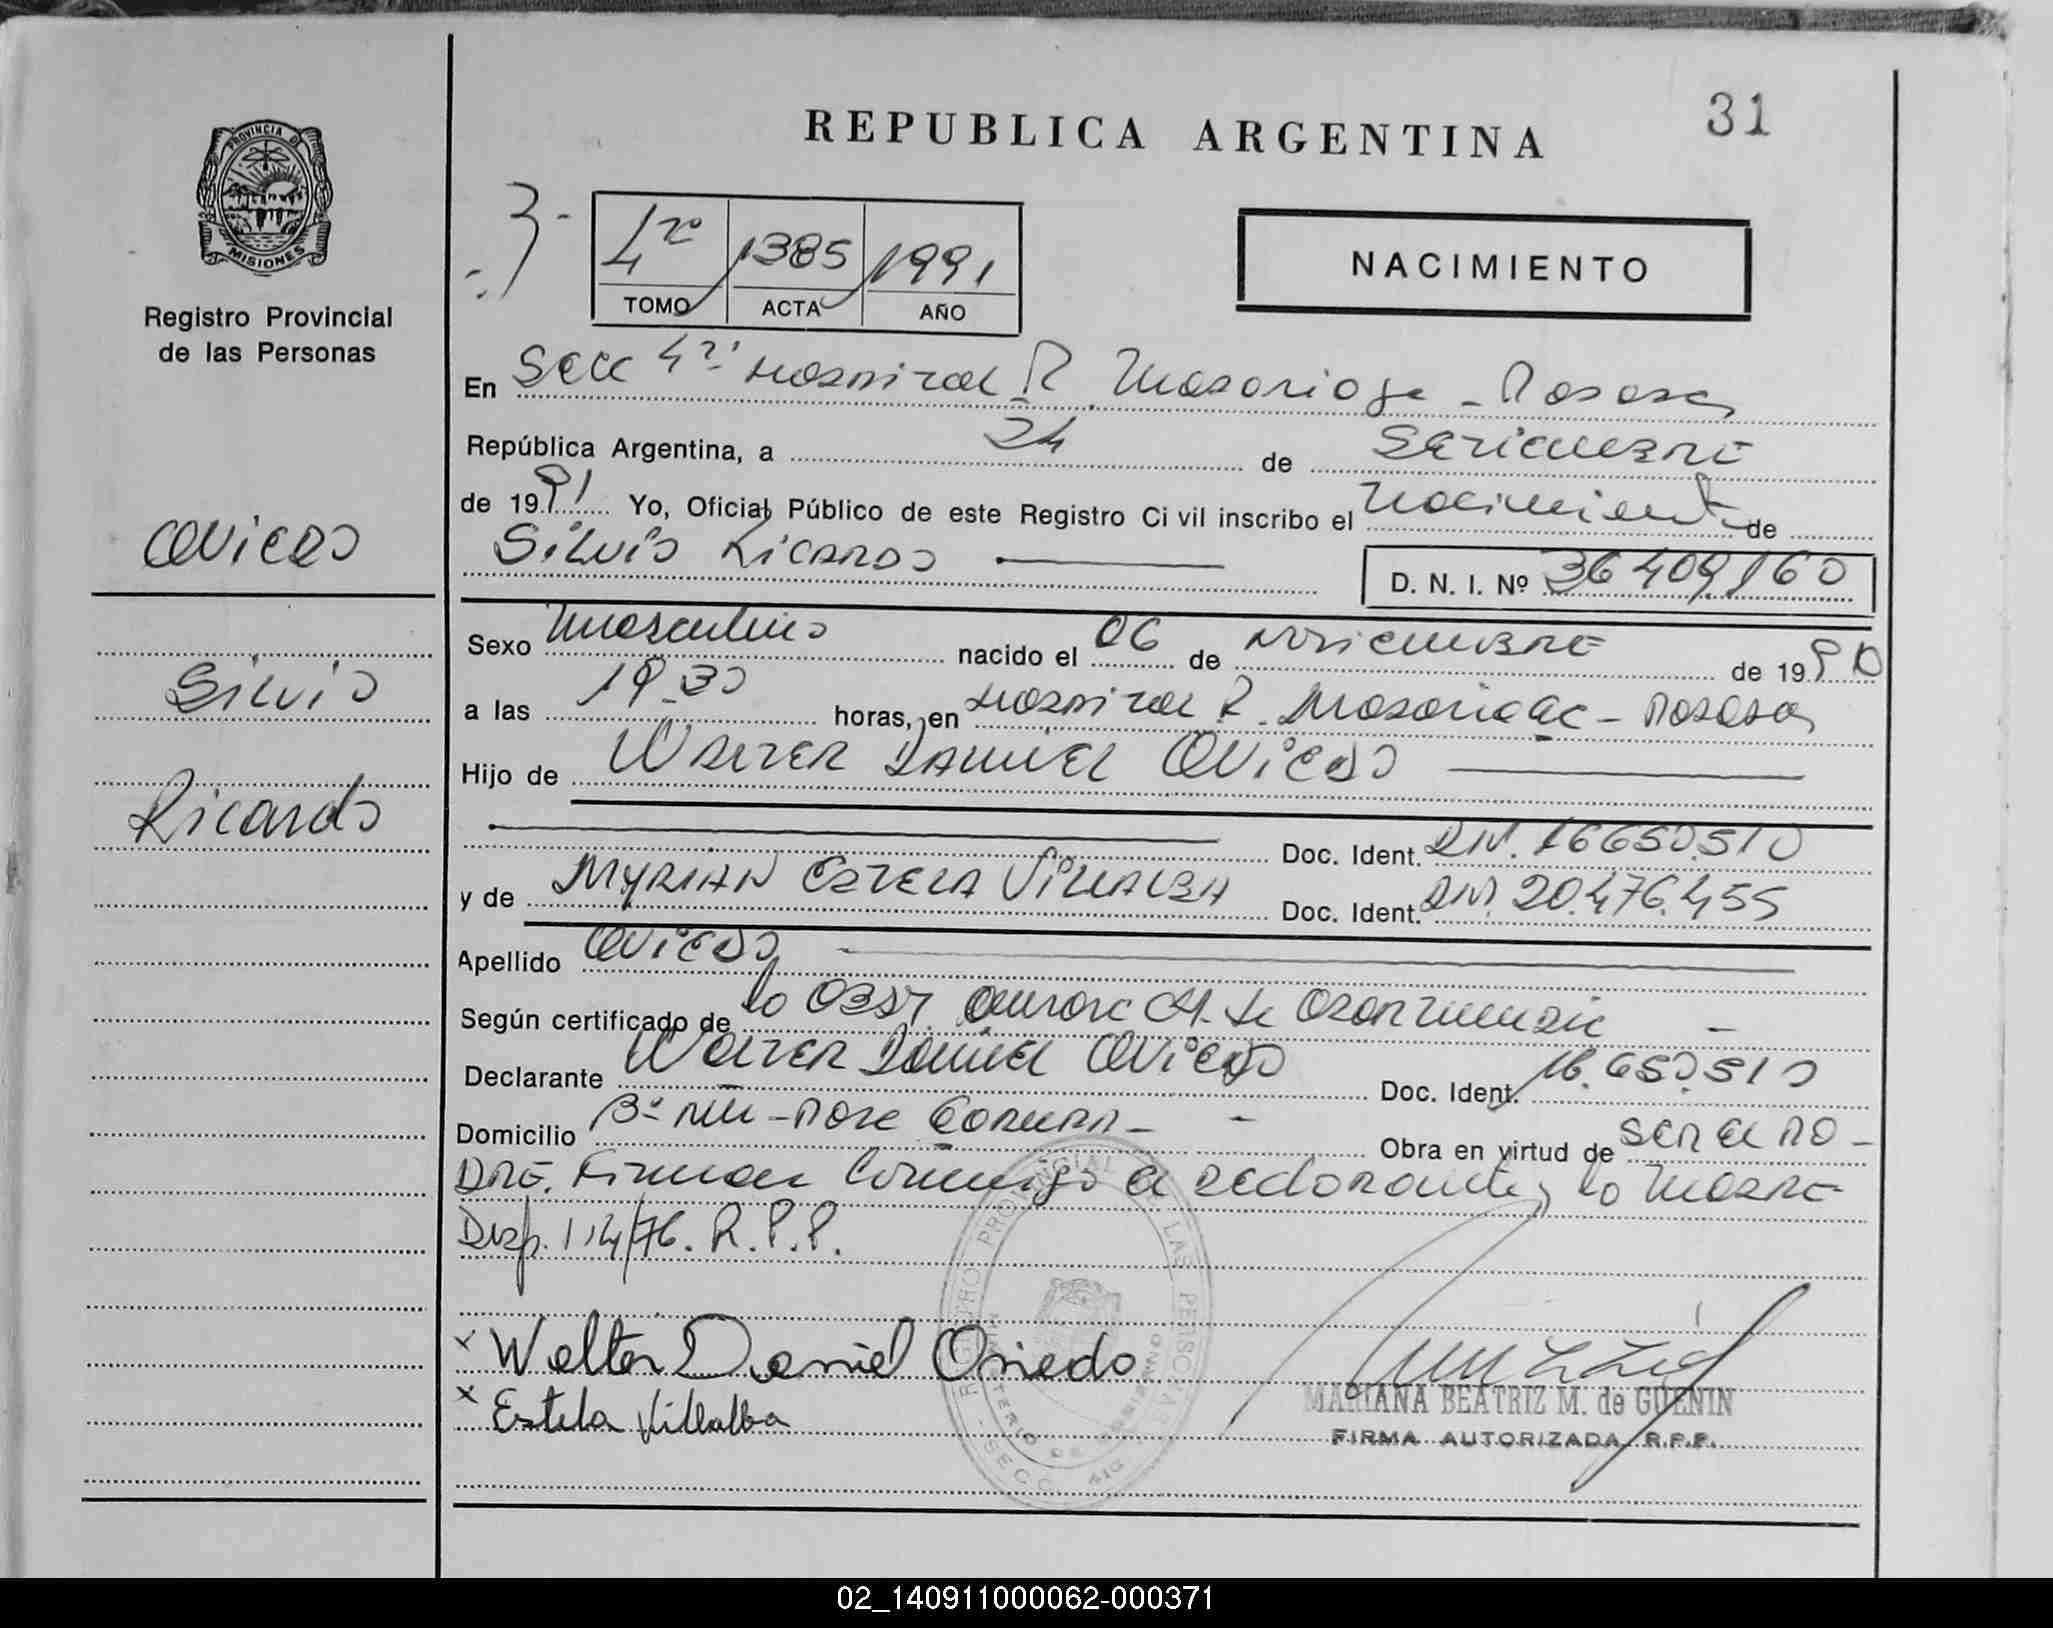 REPUBLICA ARGENTINA
31
PROVINCIA DE
MISIONES
Registro Provincial
de las Personas
4to 1385 1991
TOMO ACTA AÑO
NACIMIENTO
En Secc 4ta Hospital R. Madariaga - Posadas
República Argentina, a 24 de Setiembre
de 1991 Yo, Oficial Público de este Registro Civil inscribo el nacimiento de
Silvio Ricardo
D. N. I. Nº 36409160
Oviedo
Silvio
Ricardo
Sexo Masculino nacido el 06 de Noviembre de 1990
a las 19.30 horas, en Hospital R. Madariaga - Posadas
Hijo de Walter Daniel Oviedo
Doc. Ident. DNI. 16650.510
y de Myrian Estela Villalba Doc. Ident. DNI. 20.476.455
Apellido Oviedo
Según certificado de la Obst. Aurora M. de
Declarante Walter Daniel Oviedo Doc. Ident. 16.650.510
Domicilio Bº Obra en virtud de ser el pa-
dre. Firman conmigo el declarante y la madre
Disp. 114/76. R.P.P.
x Walter Daniel Oviedo
x Estela Villalba
REGISTRO PROVINCIAL DE LAS PERSONAS
MINISTERIO DE GOBIERNO
MARIANA BEATRIZ M. de GUENIN
FIRMA AUTORIZADA R.P.P.
02_140911000062-000371